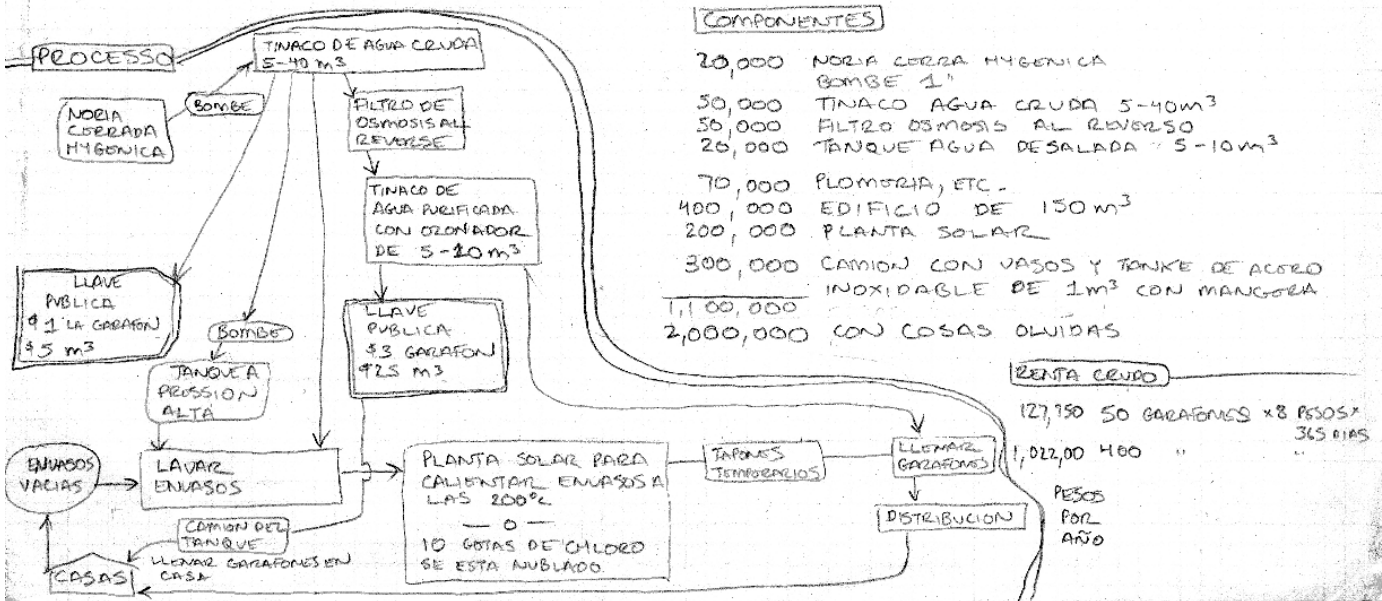 PROCESSO
TINACO DE AGUA CRUDA
5-40 m³
NORIA
CERRADA
HYGENICA
BOMBE
FILTRO DE
OSMOSIS AL
REVERSE
TINACO DE
AGUA PURIFICADA
CON OZONADOR
DE 5-10 m³
LLAVE
PUBLICA
$1 LA GARAFON
$5 m³
BOMBE
TANQUE A
PRESSION
ALTA
LLAVE
PUBLICA
$3 GARAFON
$25 m³
ENVASOS
VACIAS
LAVAR
ENVASOS
PLANTA SOLAR PARA
CALIENTAR ENVASOS A
LAS 200°C
— O —
10 GOTAS DE CHLORO
SE ESTA NUBLADO
TAPONES
TEMPORARIOS
LLENAR
GARAFONES
DISTRIBUCION
CAMION DEL
TANQUE
LLENAR GARAFONES EN
CASA
CASAS
COMPONENTES
20,000 NORIA CERRA HYGENICA
BOMBE 1"
50,000 TINACO AGUA CRUDA 5-40m³
50,000 FILTRO OSMOSIS AL REVERSO
20,000 TANQUE AGUA DESALADA 5-10m³
70,000 PLOMERIA, ETC.
400,000 EDIFICIO DE 150m³
200,000 PLANTA SOLAR
300,000 CAMION CON VASOS Y TANKE DE ACERO
INOXIDABLE DE 1m³ CON MANGERA
1,100,000
2,000,000 CON COSAS OLVIDAS
RENTA CRUDO
127,750 50 GARAFONES x8 PESOS x
365 DIAS
1,022,00 400 " "
PESOS
POR
AÑO